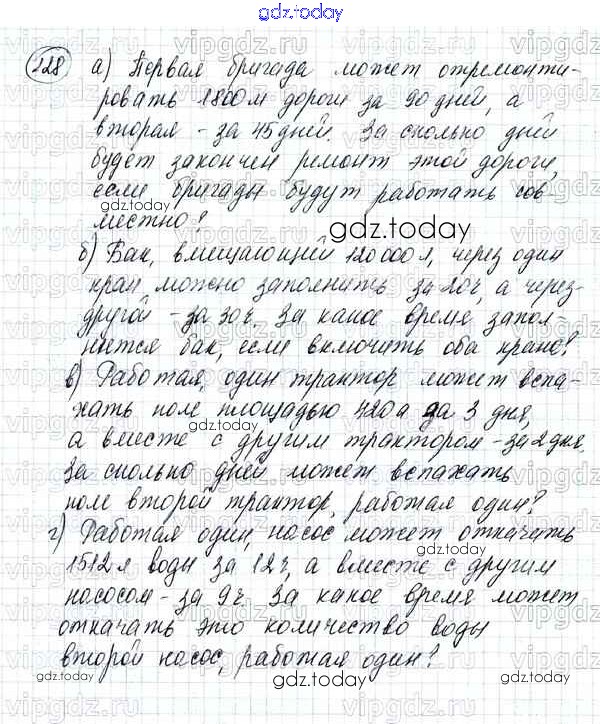 gdz.today
228 а) Первая бригада может отремонти-
ровать 1800 м дороги за 90 дней, а
вторая - за 45 дней. За сколько дней
будет закончен ремонт этой дороги,
если бригады будут работать сов-
местно?
б) Бак, вмещающий 120 000 л, через один
кран можно заполнить за 20 ч, а через
другой - за 30 ч. За какое время запол-
нится бак, если включить оба крана?
в) Работая, один трактор может вспа-
хать поле площадью 420 а за 3 дня,
а вместе с другим трактором - за 2 дня.
За сколько дней может вспахать
поле второй трактор, работая один?
г) Работая один, насос может откачать
1512 л воды за 12 ч, а вместе с другим
насосом - за 9 ч. За какое время может
откачать это количество воды
второй насос, работая один?